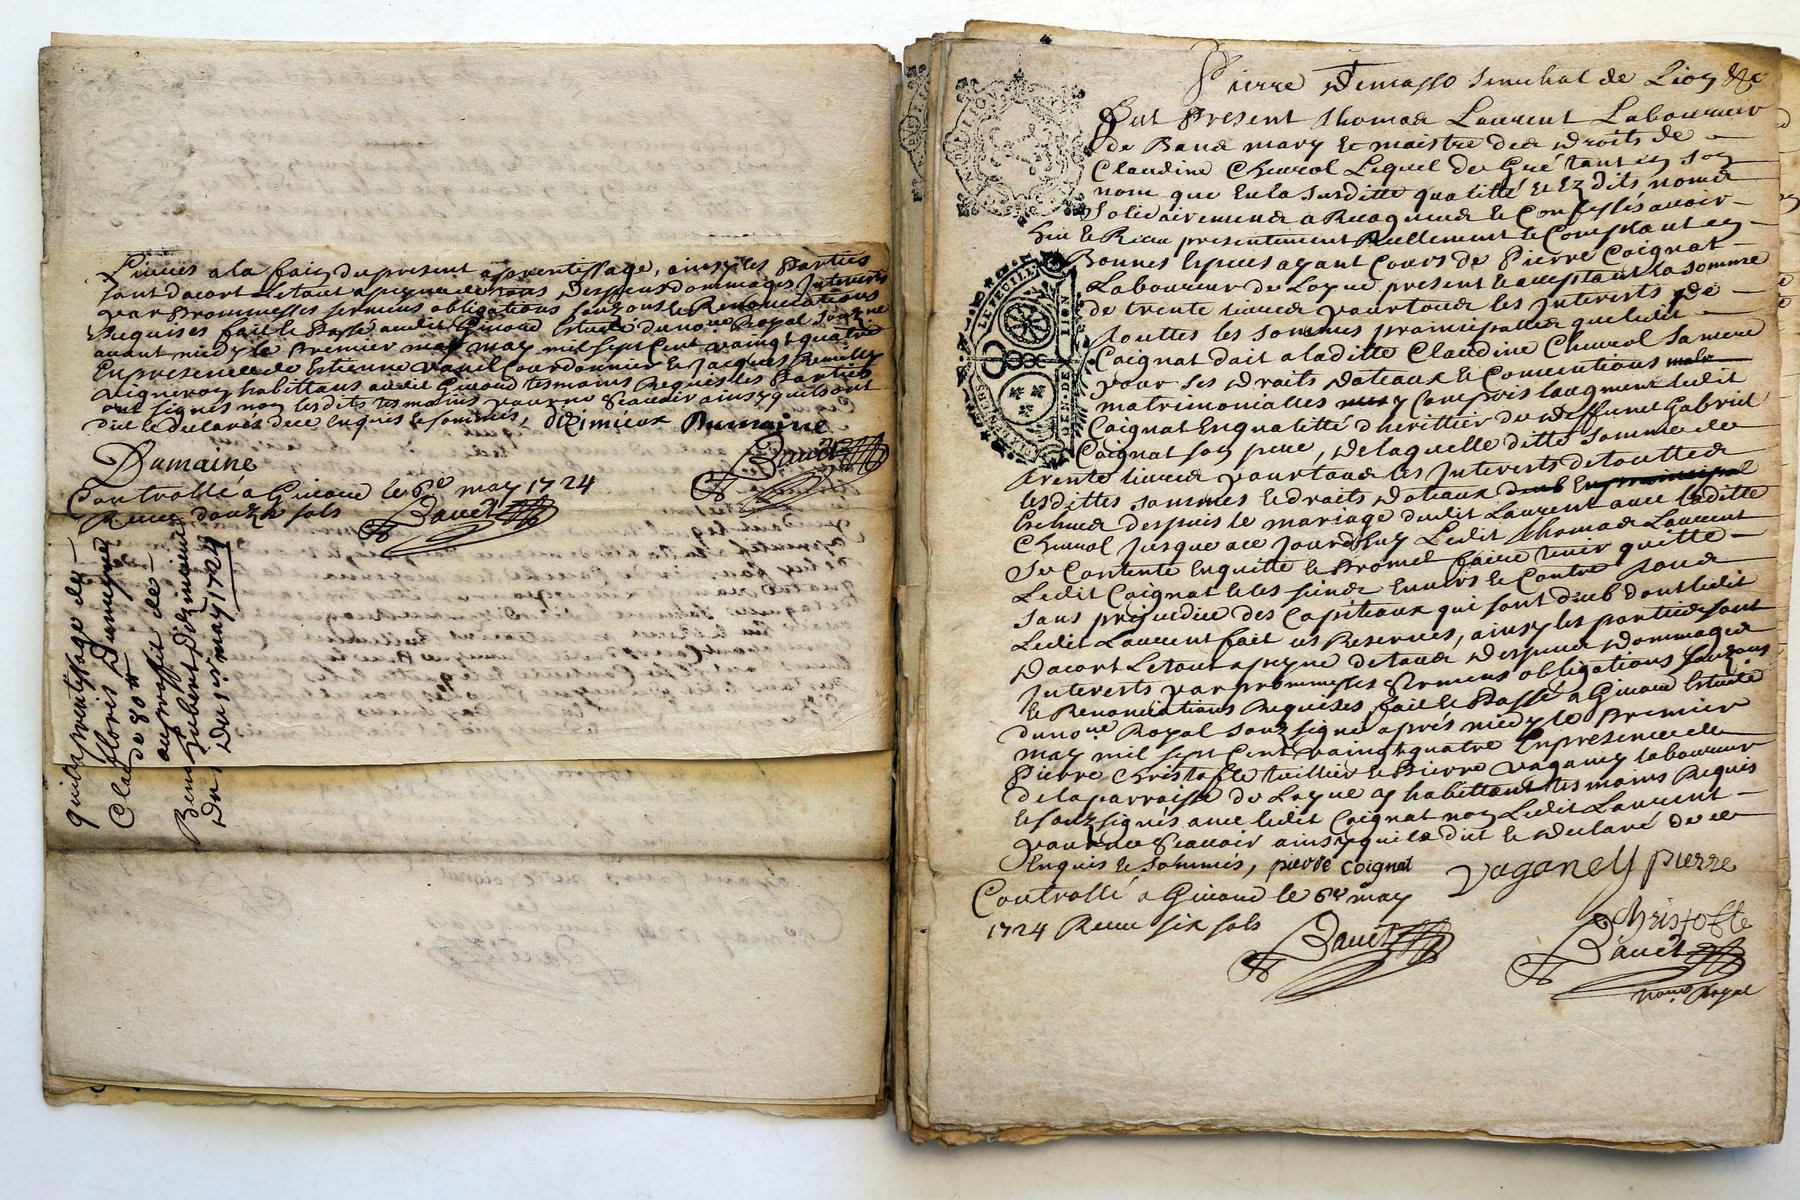 finies a la fain du present aprentissage, ainsy les Parties
sont dacort Letout a peyne de tous Despens dommages Interests
par Prommesses sermens obligations souz ons le Renonciations
Requises fait le Passé audit Givord Estude du nore Royal souzne
avant midy le Premier may mil sept Cent vaingt quatre
En presence de Estienne Courdonnier le Jacques
vigneron habittans audit Givord tesmoins Requis les Parties
ont signés non lesdits tesmoins pour ne scavoir ainsy quils ont
dit le declarés dece Enquis le sommés, dizimieux Dumaine
Dumaine
Bauet
Controllé a Givord le 6e may 1724
Receu douze sols
Bauet
quitaprentissage de
Claude floris Dumayne
de 80 tt
au proffit de
Benoi Jubert Dizimieux
Du 1er may 1724
Pierre Demasso Senechal de Lion &c
Fut Present Thomas Laurent Laboureur
de Band mary Et maistre des Droits de
Claudine Cheurol Lequel de Gré tant en son
nom que En la Susditte qualitté Et Ez dits noms
Solidairement a Recogneu le Confessés avoir
heu le Receu presentement Reellement le Comptant en
Bonnes Especes ayant Cours de Pierre Coignat
Laboureur de Loyne present le acceptant la somme
de trente livres pour tous les Interests De
touttes les sommes prainsipalles que ledit
Coignat doit a laditte Claudine Cheurol Sa mere
pour ses Droits Dotaux le Conventions
matrimonialles y Compris laugment ledit
Coignat En qualitté d'herittier de Deffunet Gabriel
Coignat son pere, de laquelle ditte somme de
trente livres pour tous les Interests de touttes
lesdittes sommes le droits Dotaux
Escheus despuis le mariage dudit Laurent avec laditte
Cheurol Jusque a ce Jourdhuy Ledit Thomas Laurent
Se Contente En quitte le Promet faire tenir quitte
Ledit Coignat le les siens Envers le Contre tous
sans prejudice des Capiteaux qui sont deub dont ledit
Ledit Laurent fait ses Reserves, ainsy les parties sont
Dacort Letout a peyne de tous Despens Dommages
Interests par prommesses sermens obligations souz ons
le Renonciations Requises fait le Passé a Givord Estude
du nore Royal souz signe aprés midy le Premier
may mil sept Cent vaingt quatre En presence de
Pierre Christofle tuillier le Pierre Vaganey laboureur
de la parroisse de Loyne y habittant tesmoins Requis
le souz signés avec ledit Coignat non Ledit Laurent
pour ne scavoir ainsy quil a dit le Declaré de ce
Enquis le sommés, pierre coignat
vaganey pierre
Controllé a Givord le 6e may
1724 Receu six sols
Christofle
Bauet
Bauet
nore Royal